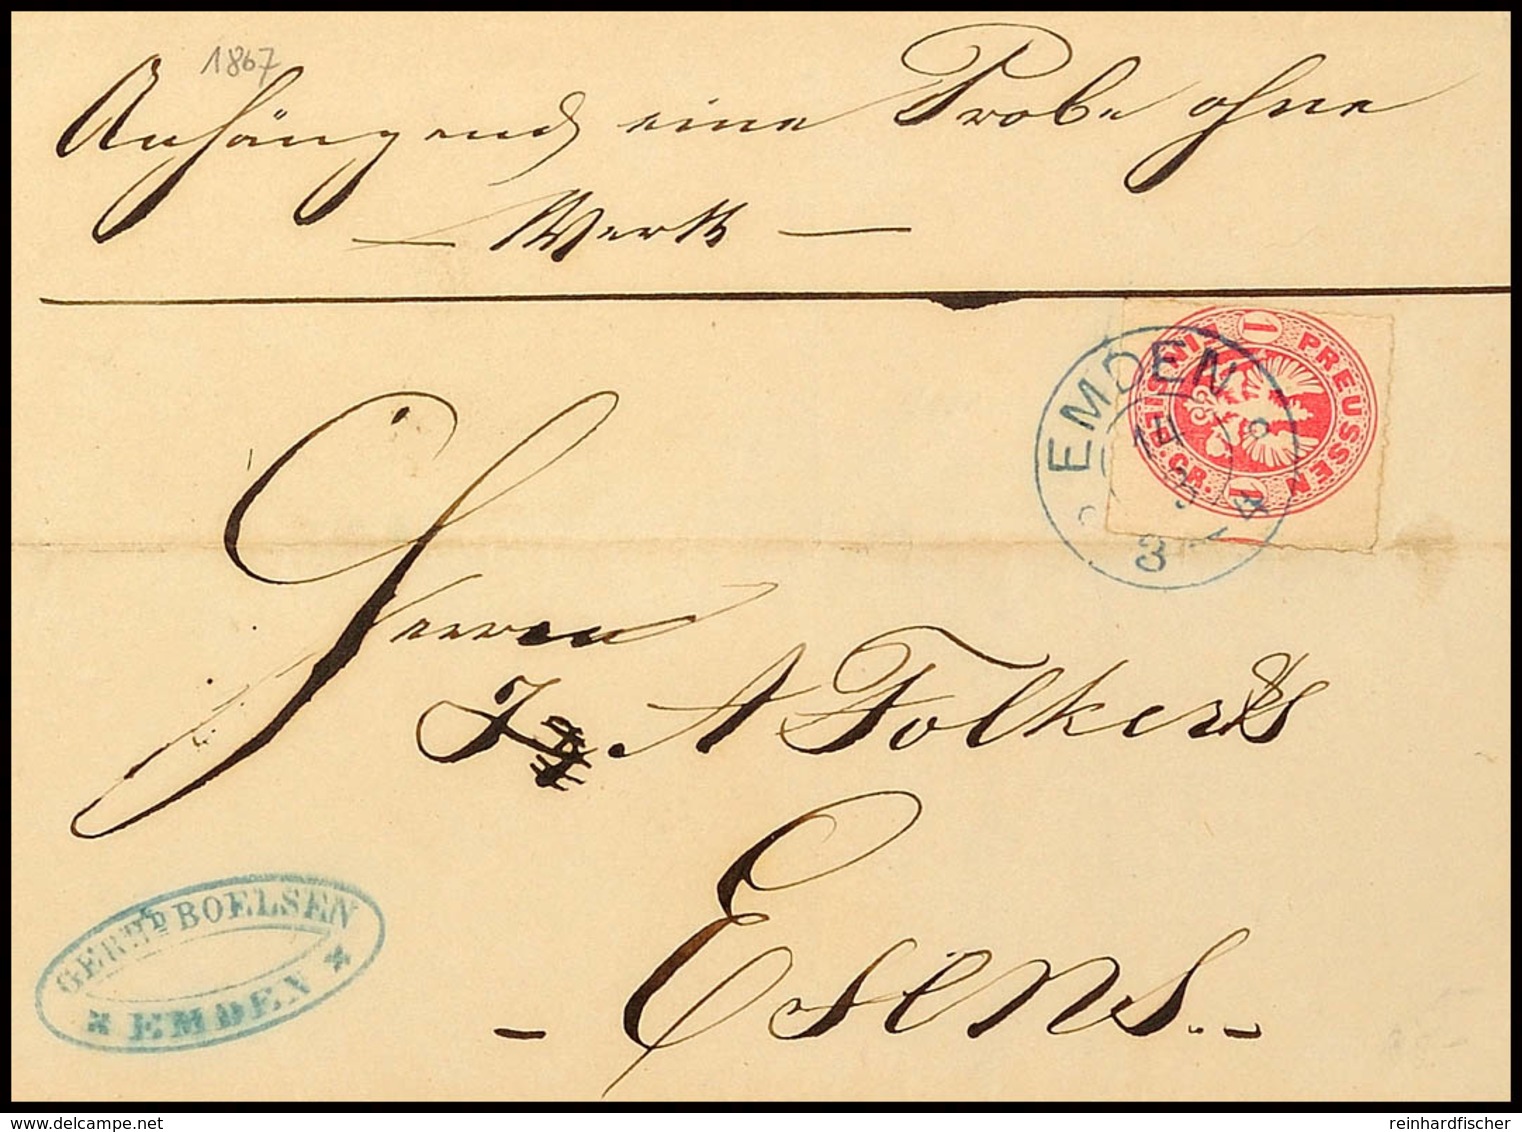 1867
Anhängend eine Probe ohne
— Werth —
1 PREUSSEN
EIN SILB.GR. 1
EMDEN
14
3
Herrn
A Folkerts
- Esens.-
GERHD BOELSEN
EMDEN
reinhardfischer